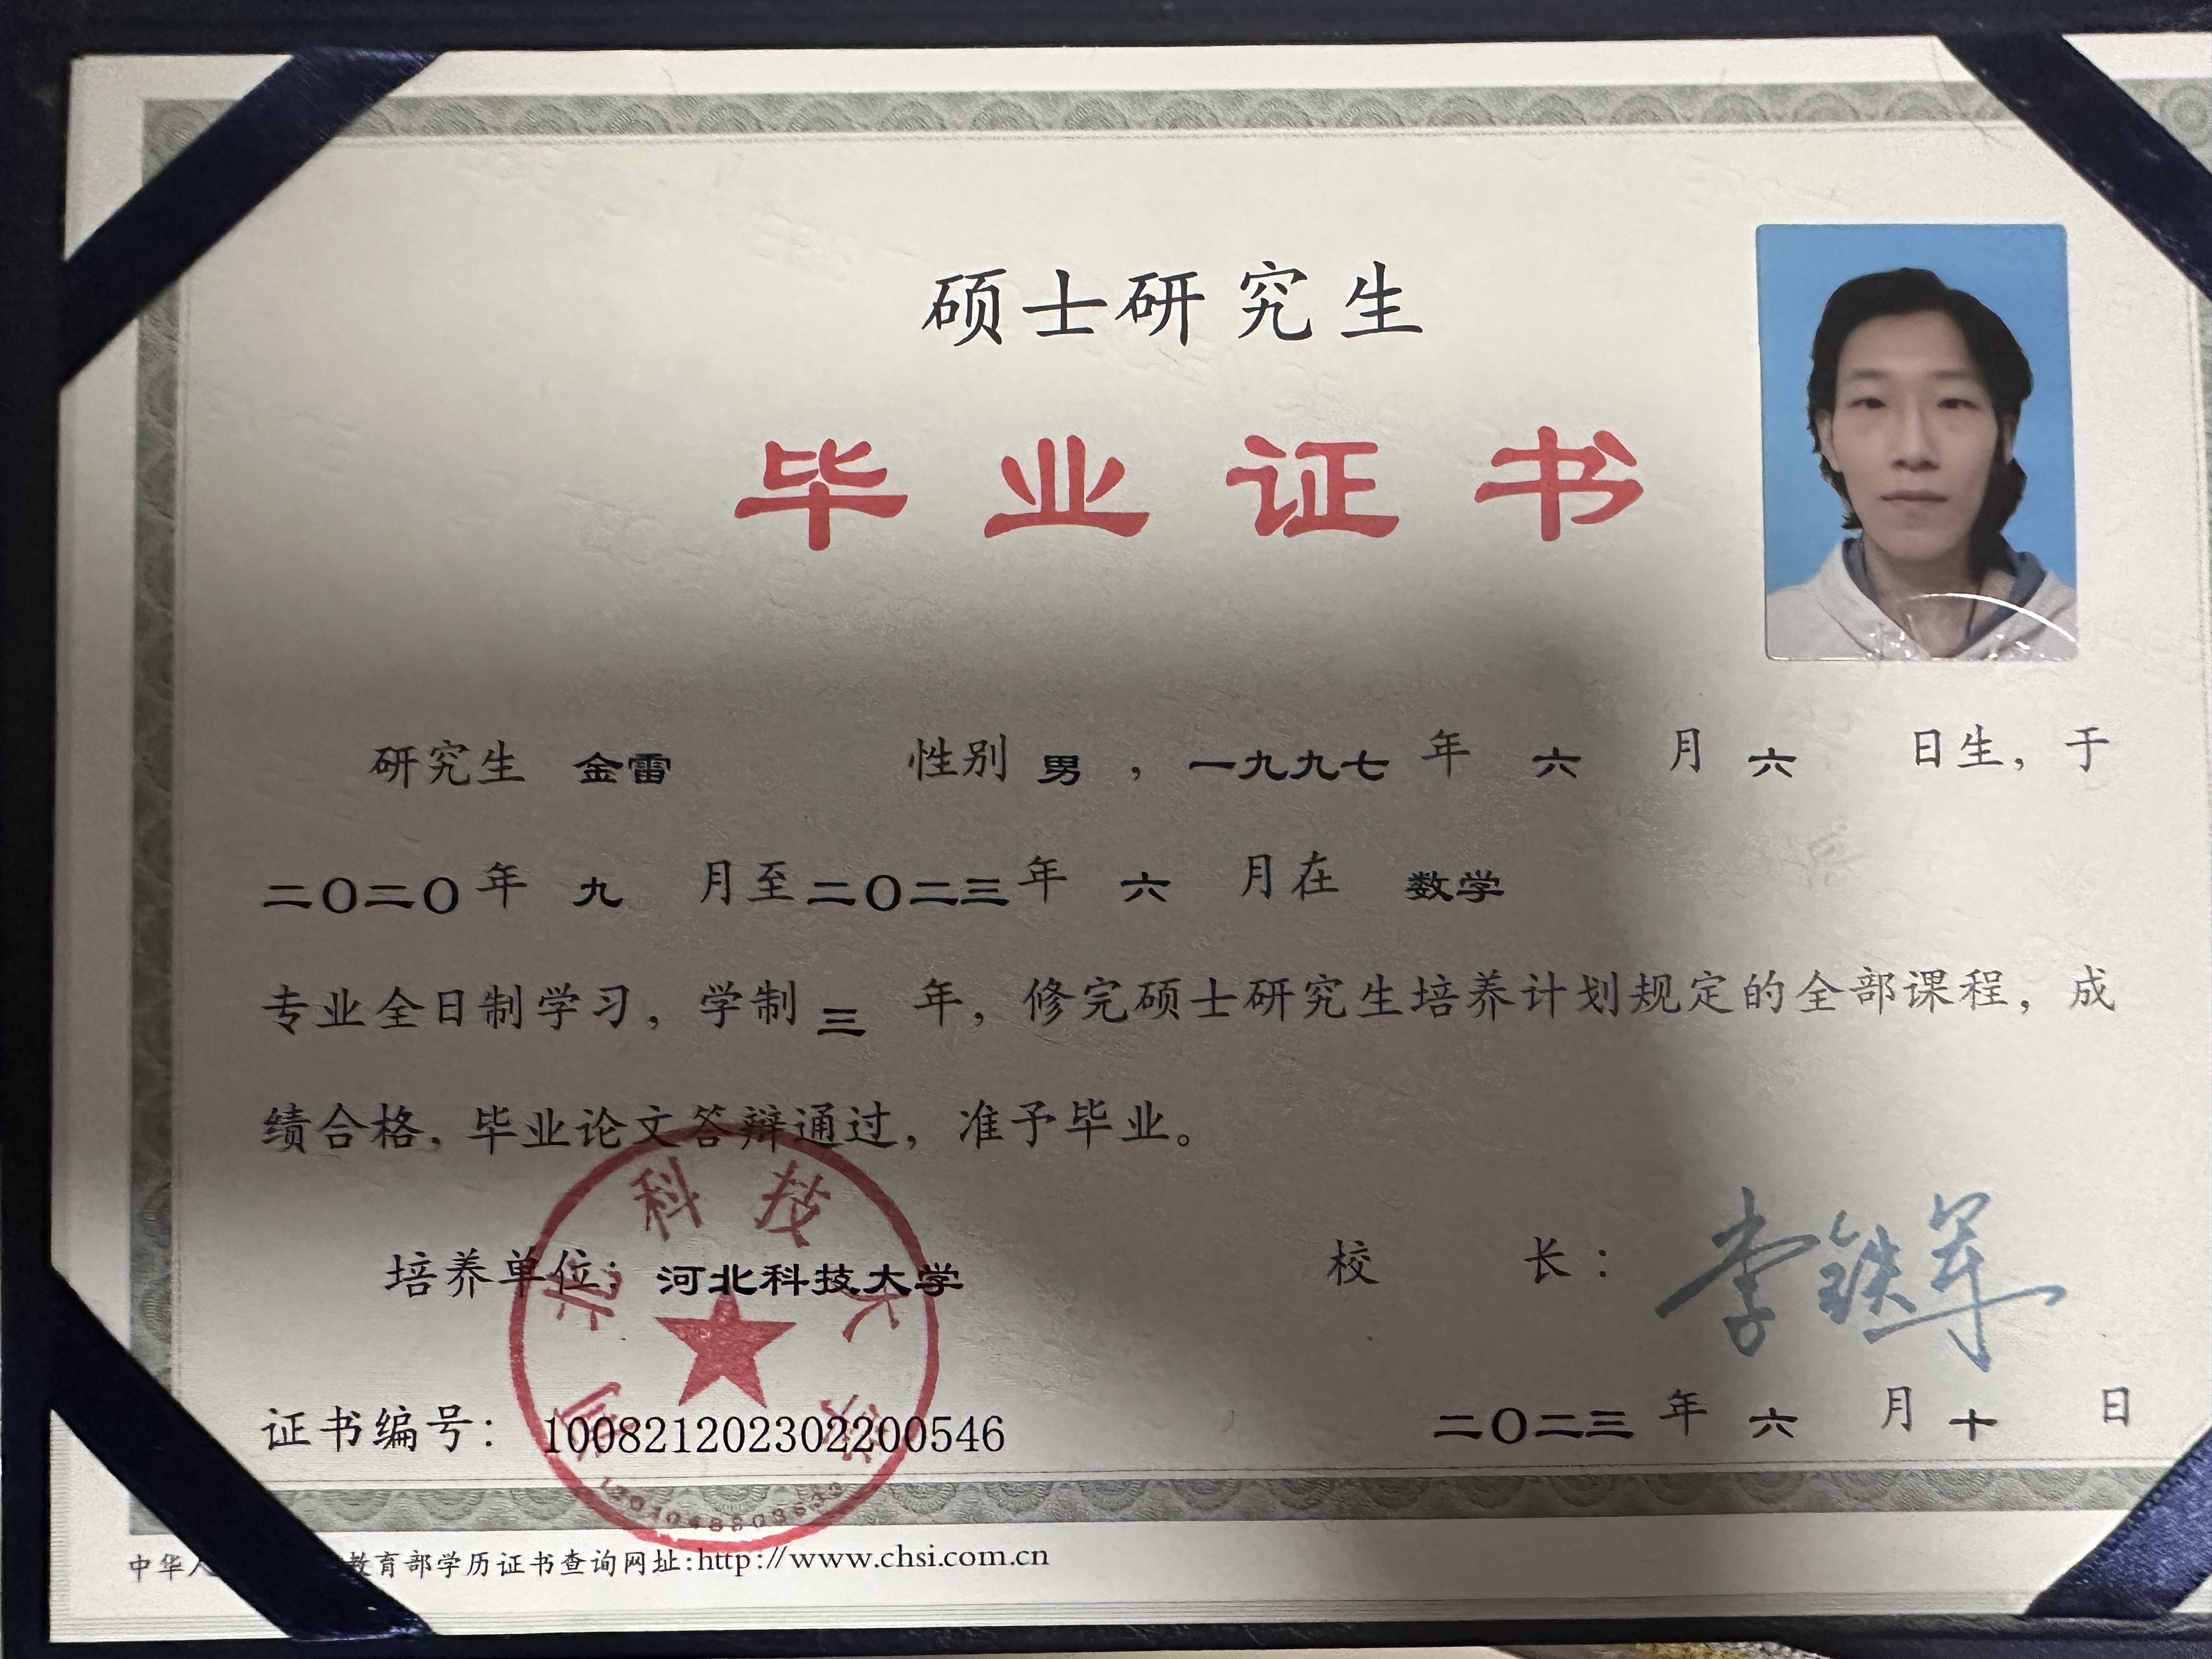 硕士研究生
毕业证书
研究生 金雷 性别 男 ， 一九九七 年 六 月 六 日生，于
二〇二〇 年 九 月至 二〇二三 年 六 月在 数学
专业全日制学习，学制 三 年，修完硕士研究生培养计划规定的全部课程，成
绩合格，毕业论文答辩通过，准予毕业。
培养单位：河北科技大学
校 长：李铁军
证书编号：100821202302200546
二〇二三 年 六 月 十 日
河北科技大学
中华人 教育部学历证书查询网址:http://www.chsi.com.cn